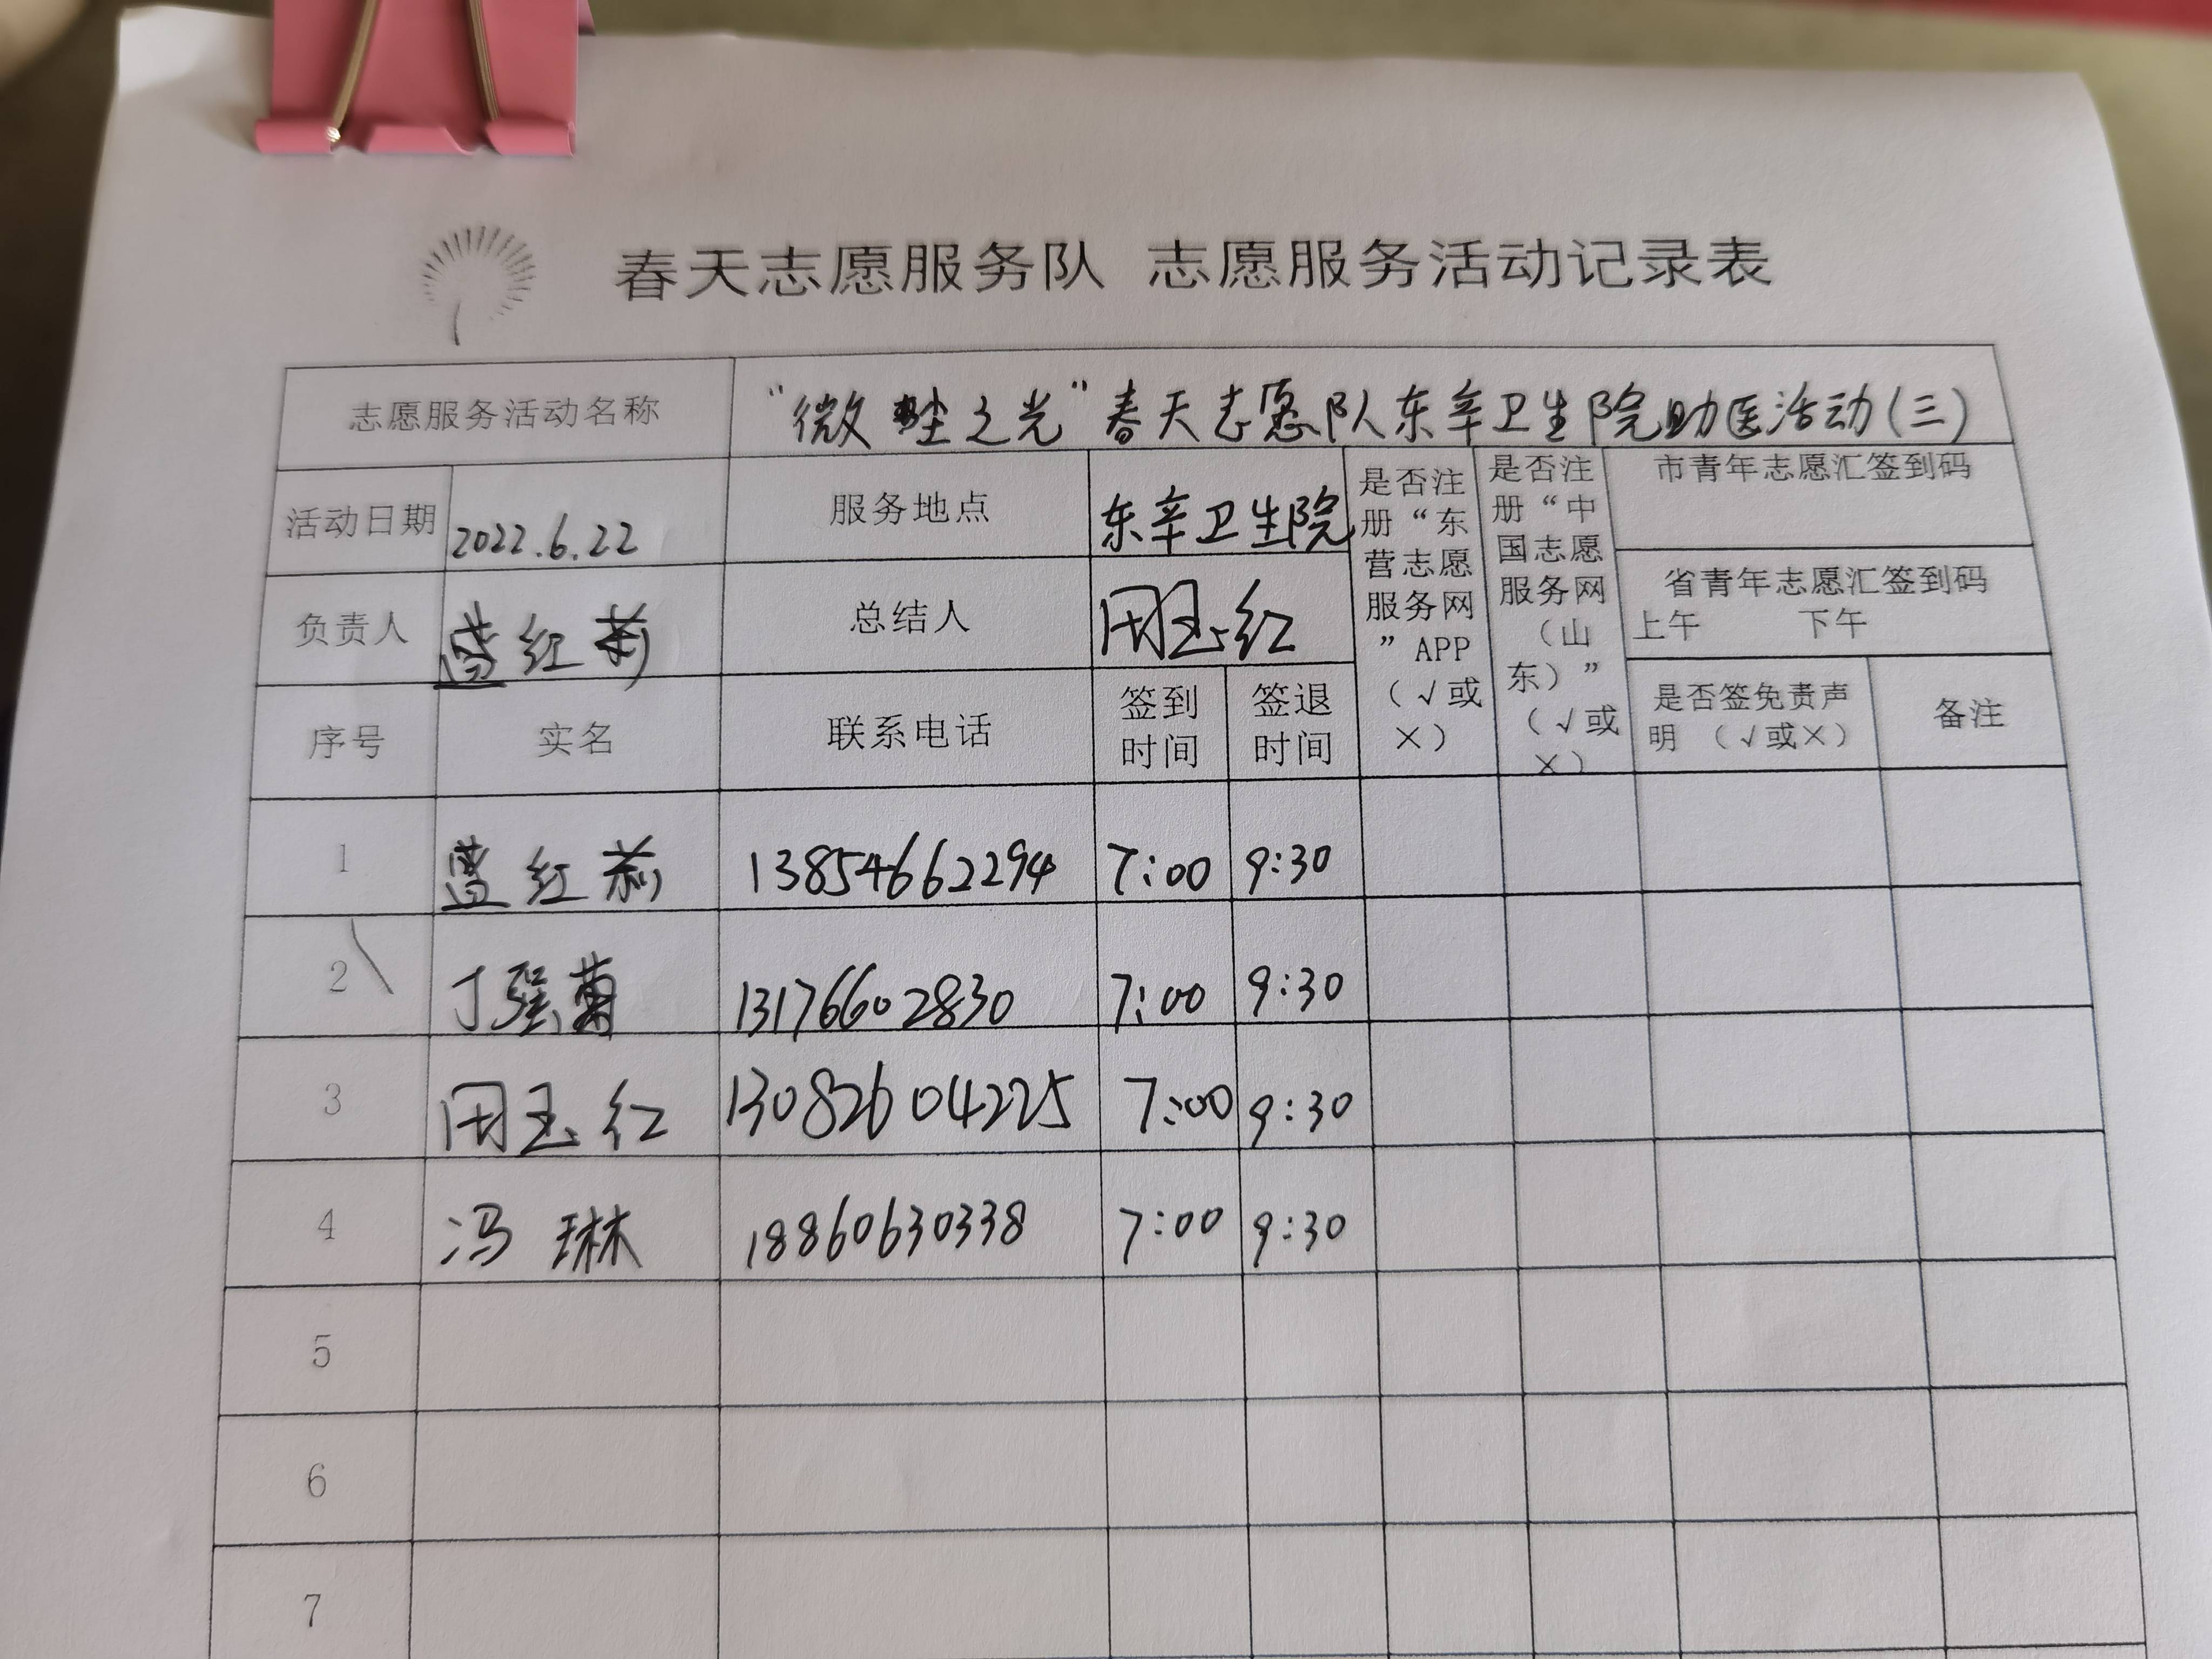 春天志愿服务队 志愿服务活动记录表
志愿服务活动名称 “微尘之光”春天志愿队东辛卫生院助医活动(三)
活动日期 2022.6.22 服务地点 东辛卫生院
是否注册“东营志愿服务网”APP（√或×）
是否注册“中国志愿服务网（山东）”（√或×）
市青年志愿汇签到码
省青年志愿汇签到码
上午 下午
负责人 红莉 总结人 周玉红
序号 实名 联系电话 签到时间 签退时间 是否签免责声明（√或×） 备注
1 红莉 13854662294 7:00 9:30
2 丁强菊 13176602830 7:00 9:30
3 周玉红 13082604225 7:00 9:30
4 冯琳 18860630338 7:00 9:30
5
6
7